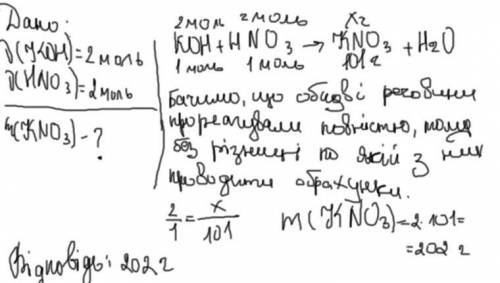 Дано:
ν(KOH)=2моль
ν(HNO3)=2моль
m(KNO3)-?
2моль 2моль xг
KOH+HNO3→KNO3+H2O
1моль 1моль 101г
Бачимо, що обидві речовини
прореагували повністю, тому
без різниці по якій з них
проводити обрахунки.
2/1=x/101 m(KNO3)=2·101=
=202г
Відповідь: 202г